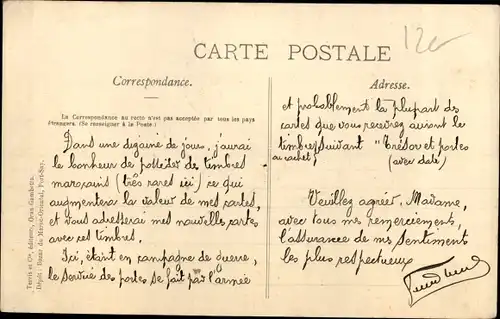 12e
CARTE POSTALE
Correspondance.
La Correspondance au recto n'est pas acceptée par tous les pays
étrangers. (Se renseigner à la Poste.)
Dans une dizaine de jours, j'aurai
le bonheur de posséder des timbres
marocains (très rares ici) ce qui
augmentera la valeur de mes cartes,
et vous adresserai mes nouvelles cartes
avec ces timbres.
Ici, étant en campagne de guerre,
le service des postes se fait par l'armée
Adresse.
et probablement la plupart des
cartes que vous recevrez auront le
timbre suivant "Trésor et postes
ou cachet) (avec date)
Veuillez agréer, Madame,
avec tous mes remerciements,
l'assurance de mes sentiments
les plus respectueux
Dépôt : Bazar du Maroc-Oriental, Port-Say.